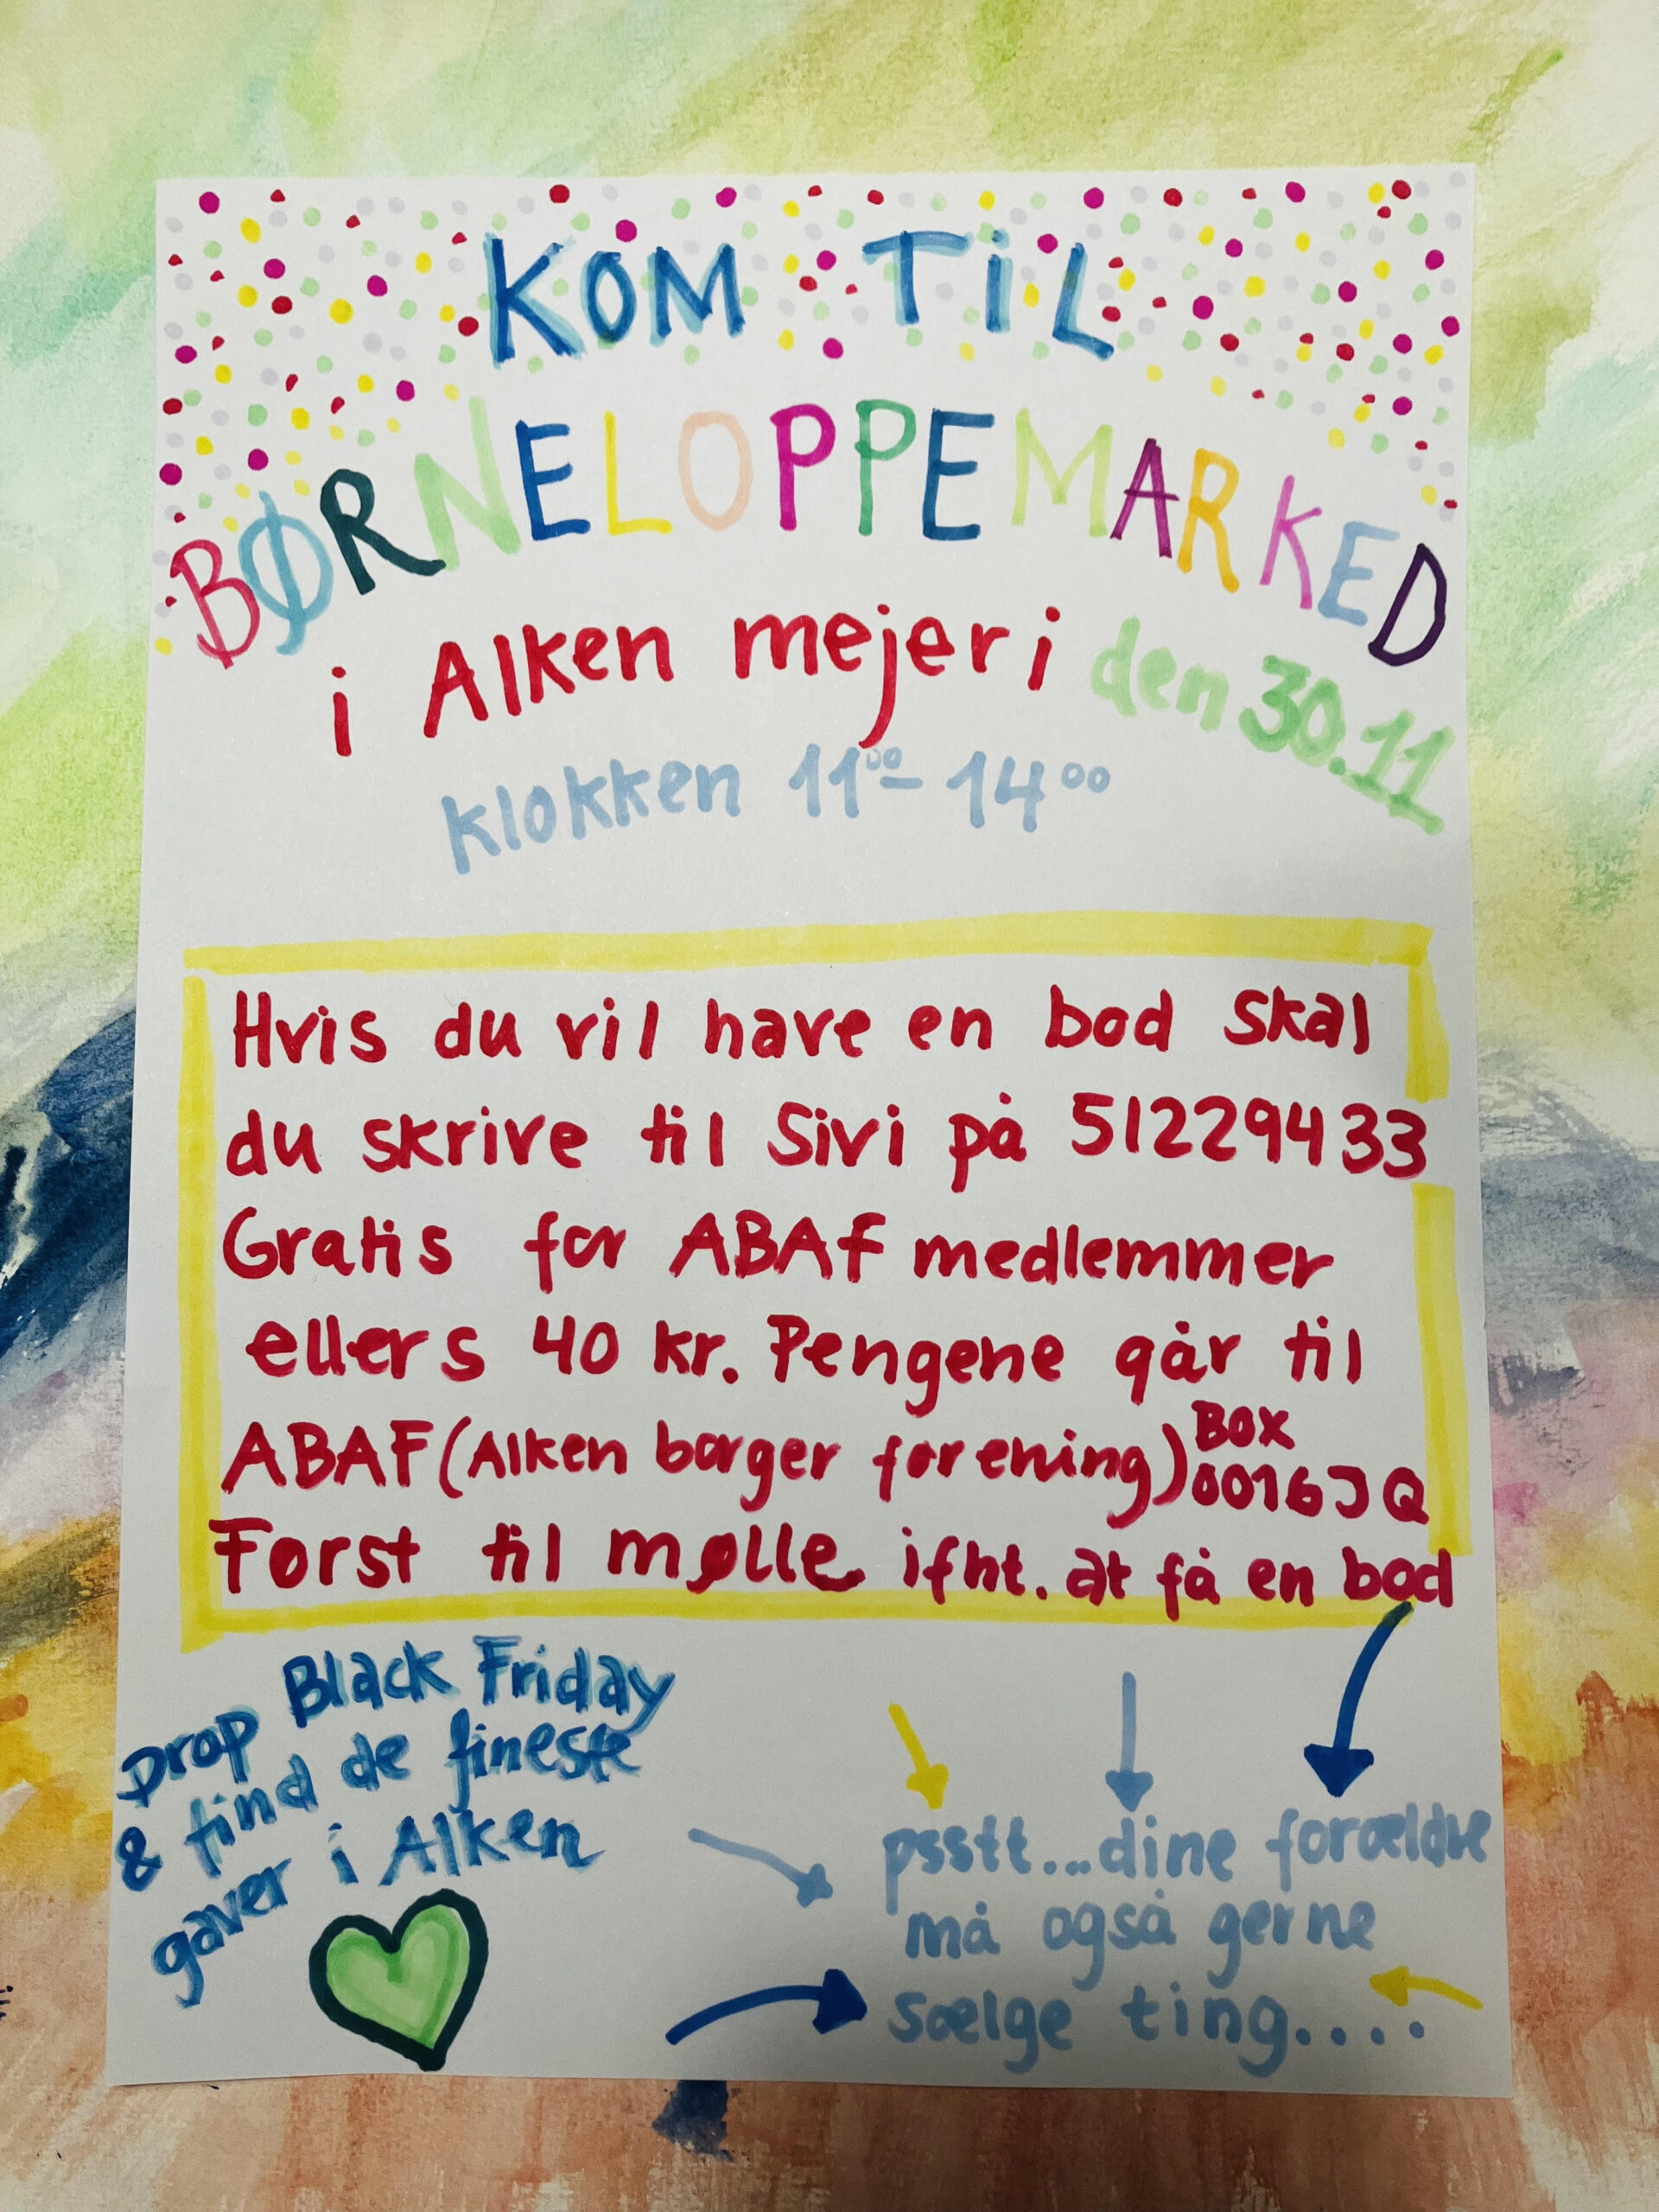 KOM TiL
BØRNELOPPEMARKED
i Alken mejeri den 30.11
klokken 11⁰⁰-14⁰⁰
Hvis du vil have en bod skal
du skrive til Sivi på 51229433
Gratis for ABAf medlemmer
ellers 40 kr. Pengene går til
ABAF (Alken borger forening) BOX
0016JQ
Først til mølle ifht. at få en bod
Drop Black Friday
& find de fineste
gaver i Alken
psstt...dine forældre
må også gerne
sælge ting....